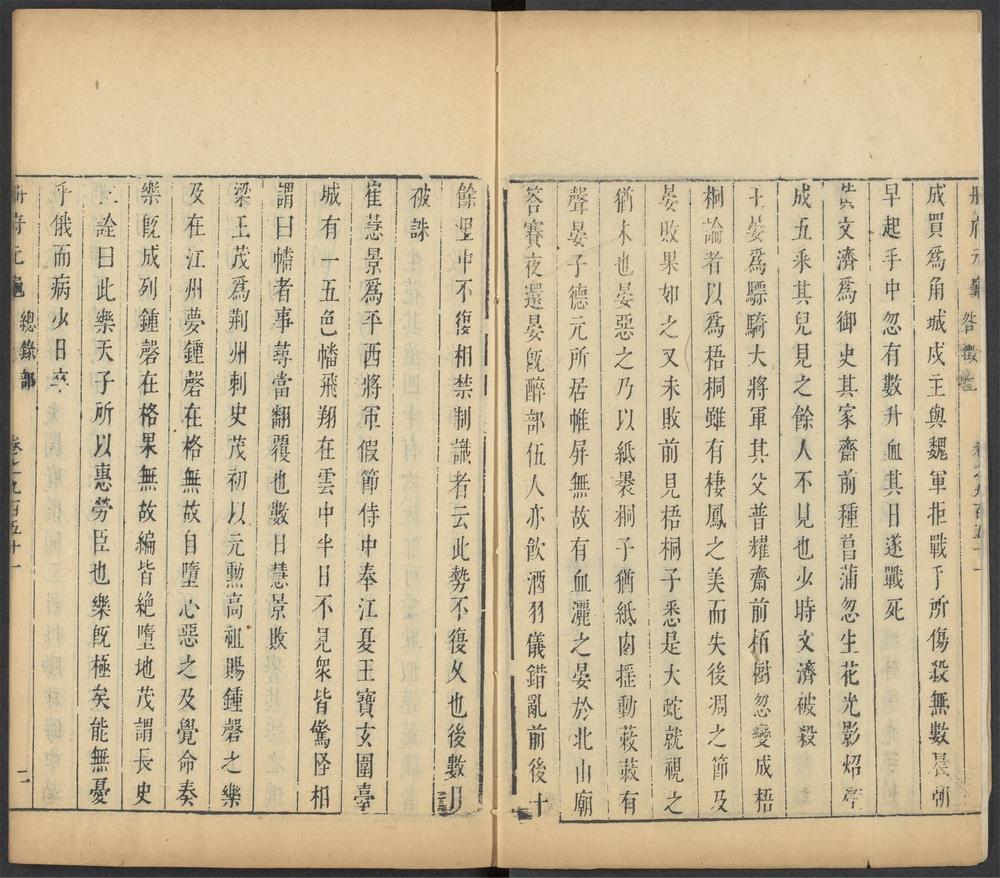 冊府元龜 咎徵二 卷之九百五十一
成買爲角城戍主與魏軍拒戰手所傷殺無數晨朝
早起手中忽有數升血其日遂戰死
黃文濟爲御史其家齋前種菖蒲忽生花光影炤壁
成五采其兒見之餘人不見也少時文濟被殺
王晏爲驃騎大將軍其父普耀齋前栢樹忽變成梧
桐論者以爲梧桐雖有棲鳳之美而失後凋之節及
晏敗果如之又未敗前見梧桐子悉是大蛇就視之
猶木也晏惡之乃以紙褁桐子猶紙內揺動蔌蔌有
聲晏子德元所居帷屏無故有血灑之晏於北山廟
答賽夜還晏旣醉部伍人亦飲酒羽儀錯亂前後十
餘里中不復相禁制識者云此勢不復乆也後數月
被誅
崔慧景爲平西將軍假節侍中奉江夏王寶玄圍臺
城有一五色幡飛翔在雲中半日不見衆皆驚怪相
謂曰幡者事尋當翻覆也數日慧景敗
梁王茂爲荆州刺史茂初以元勲高祖賜鍾磬之樂
及在江州夢鍾磬在格無故自墮心惡之及覺命奏
樂旣成列鍾磬在格果無故編皆絶墮地茂謂長史
江詮曰此樂天子所以惠勞臣也樂旣極矣能無憂
乎俄而病少日卒
冊府元龜 總錄部 卷之九百五十一 二